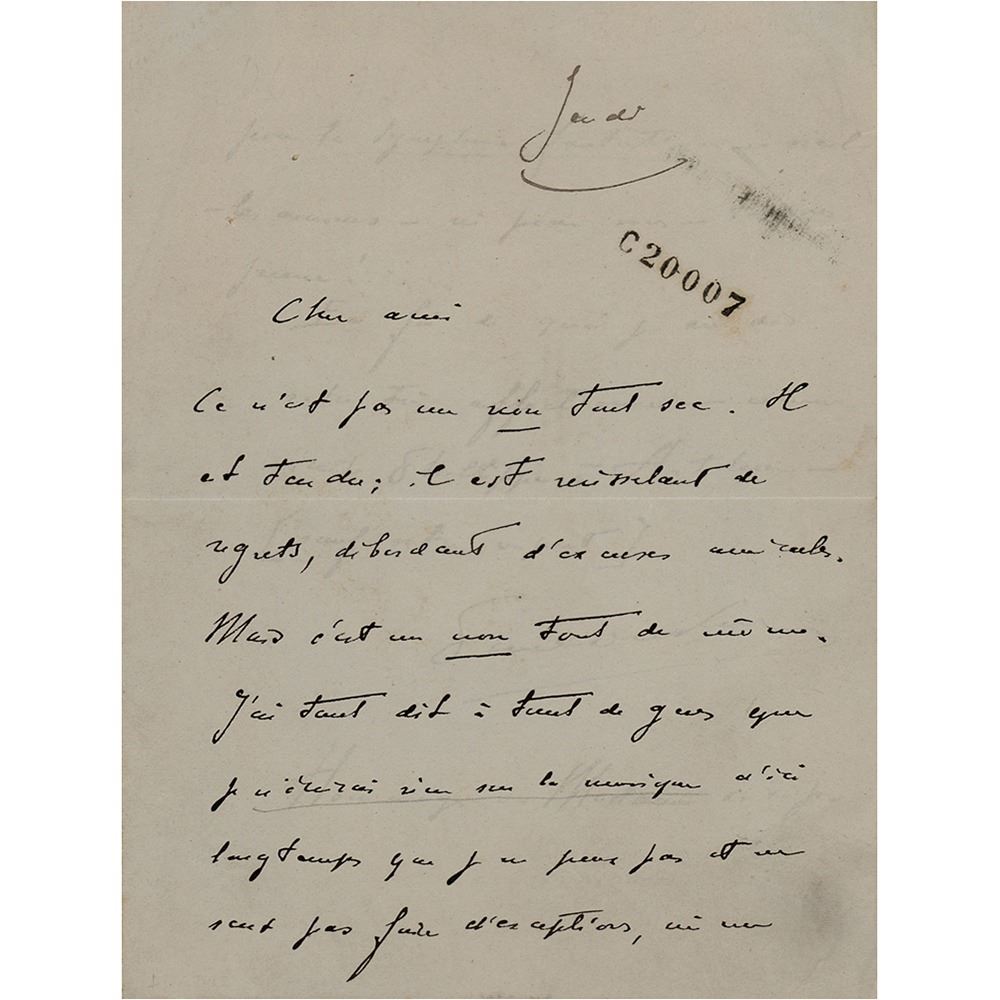 Jeudi
C20007
Cher ami
Ce n'est pas un non tout sec. Il
est tendre ; il est ruisselant de
regrets, débordant d'excuses amicales.
Mais c'est un non tout de même.
J'ai tant dit à tant de gens que
je n'écrirai rien sur la musique d'ici
longtemps que je ne peux pas et ne
veux pas faire d'exceptions, ni